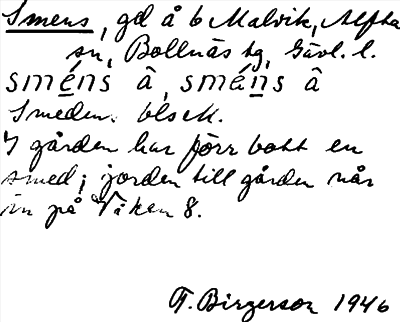 Smens, gd å 6 Malvik, Alfta
sn, Bollnäs tg, Gävl. l.
sméns â, smáns â
Smeden. blsM.
I gården har förr bott en
smed; jorden till gården når
in på Viken 8.
T. Birgerson 1946